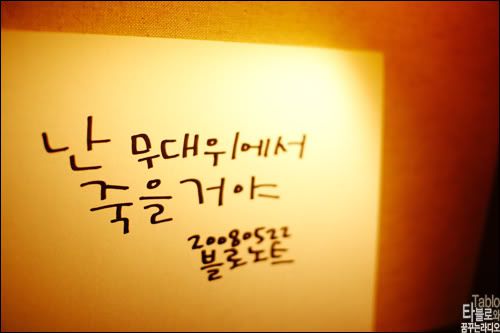 난 무대위에서
죽을거야
20080522
블로노트
Tablo
타블로와
꿈꾸는라디오